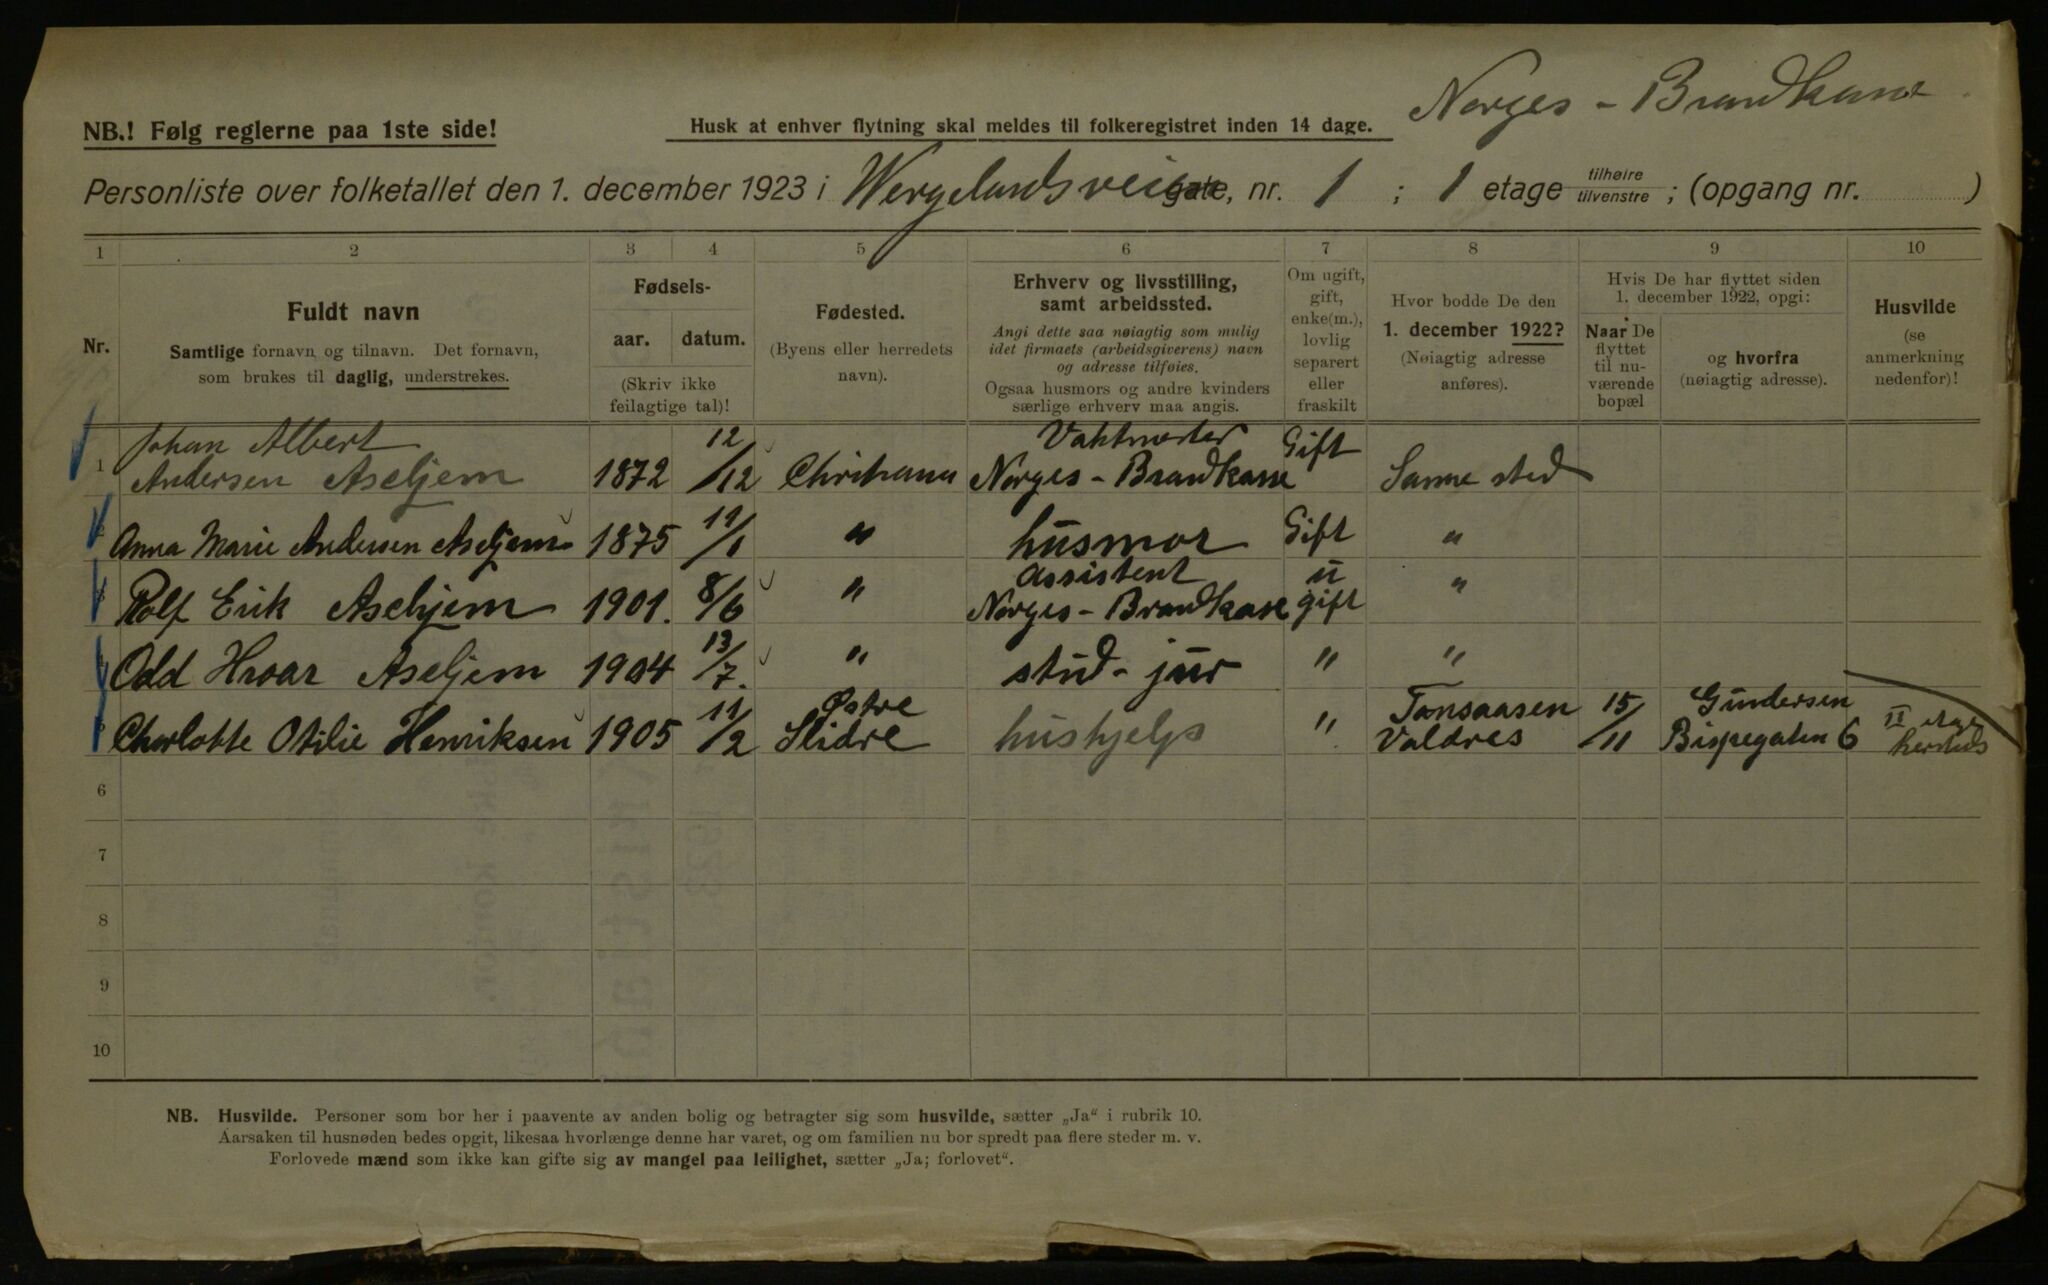 Norges - Brandkasse
NB.! Følg reglerne paa 1ste side!
Husk at enhver flytning skal meldes til folkeregistret inden 14 dage.
Personliste over folketallet den 1. december 1923 i Wergelandsveien gate, nr. 1 ; 1 etage tilhøire tilvenstre ; (opgang nr. )
1 2 3 4 5 6 7 8 9 10
Nr.
Fuldt navn
Samtlige fornavn og tilnavn. Det fornavn,
som brukes til daglig, understrekes.
Fødsels-
aar. datum.
(Skriv ikke
feilagtige tal)!
Fødested.
(Byens eller herredets
navn).
Erhverv og livsstilling,
samt arbeidssted.
Angi dette saa nøiagtig som mulig
idet firmaets (arbeidsgiverens) navn
og adresse tilføies.
Ogsaa husmors og andre kvinders
særlige erhverv maa angis.
Om ugift,
gift,
enke(m.),
lovlig
separert
eller
fraskilt
Hvor bodde De den
1. december 1922?
(Nøiagtig adresse
anføres).
Hvis De har flyttet siden
1. december 1922, opgi:
Naar De
flyttet
til nu-
værende
bopæl
og hvorfra
(nøiagtig adresse).
Husvilde
(se
anmerkning
nedenfor)!
Johan Albert 12 Vaktmester Gift
1 Andersen Aseljem 1872 /12 Christiania Norges - Brandkasse Samme sted
Anna Marie Andersen Aseljem 1875 11/1 " husmor Gift "
assistent u
Rolf Erik Aseljem 1901. 8/6 " Norges - Brandkasse gift "
Odd Hroar Aseljem 1904 13/7. " stud - jur " "
Østre Tonsaasen 15 Gundersen II etage
Charlotte Otilie Henriksen 1905 11/2 Slidre hushjelp " Valdres /11 Bispegaten 6
6
7
8
9
10
NB. Husvilde. Personer som bor her i paavente av anden bolig og betragter sig som husvilde, sætter „Ja“ i rubrik 10.
Aarsaken til husnøden bedes opgit, likesaa hvorlænge denne har varet, og om familien nu bor spredt paa flere steder m. v.
Forlovede mænd som ikke kan gifte sig av mangel paa leilighet, sætter „Ja; forlovet“.